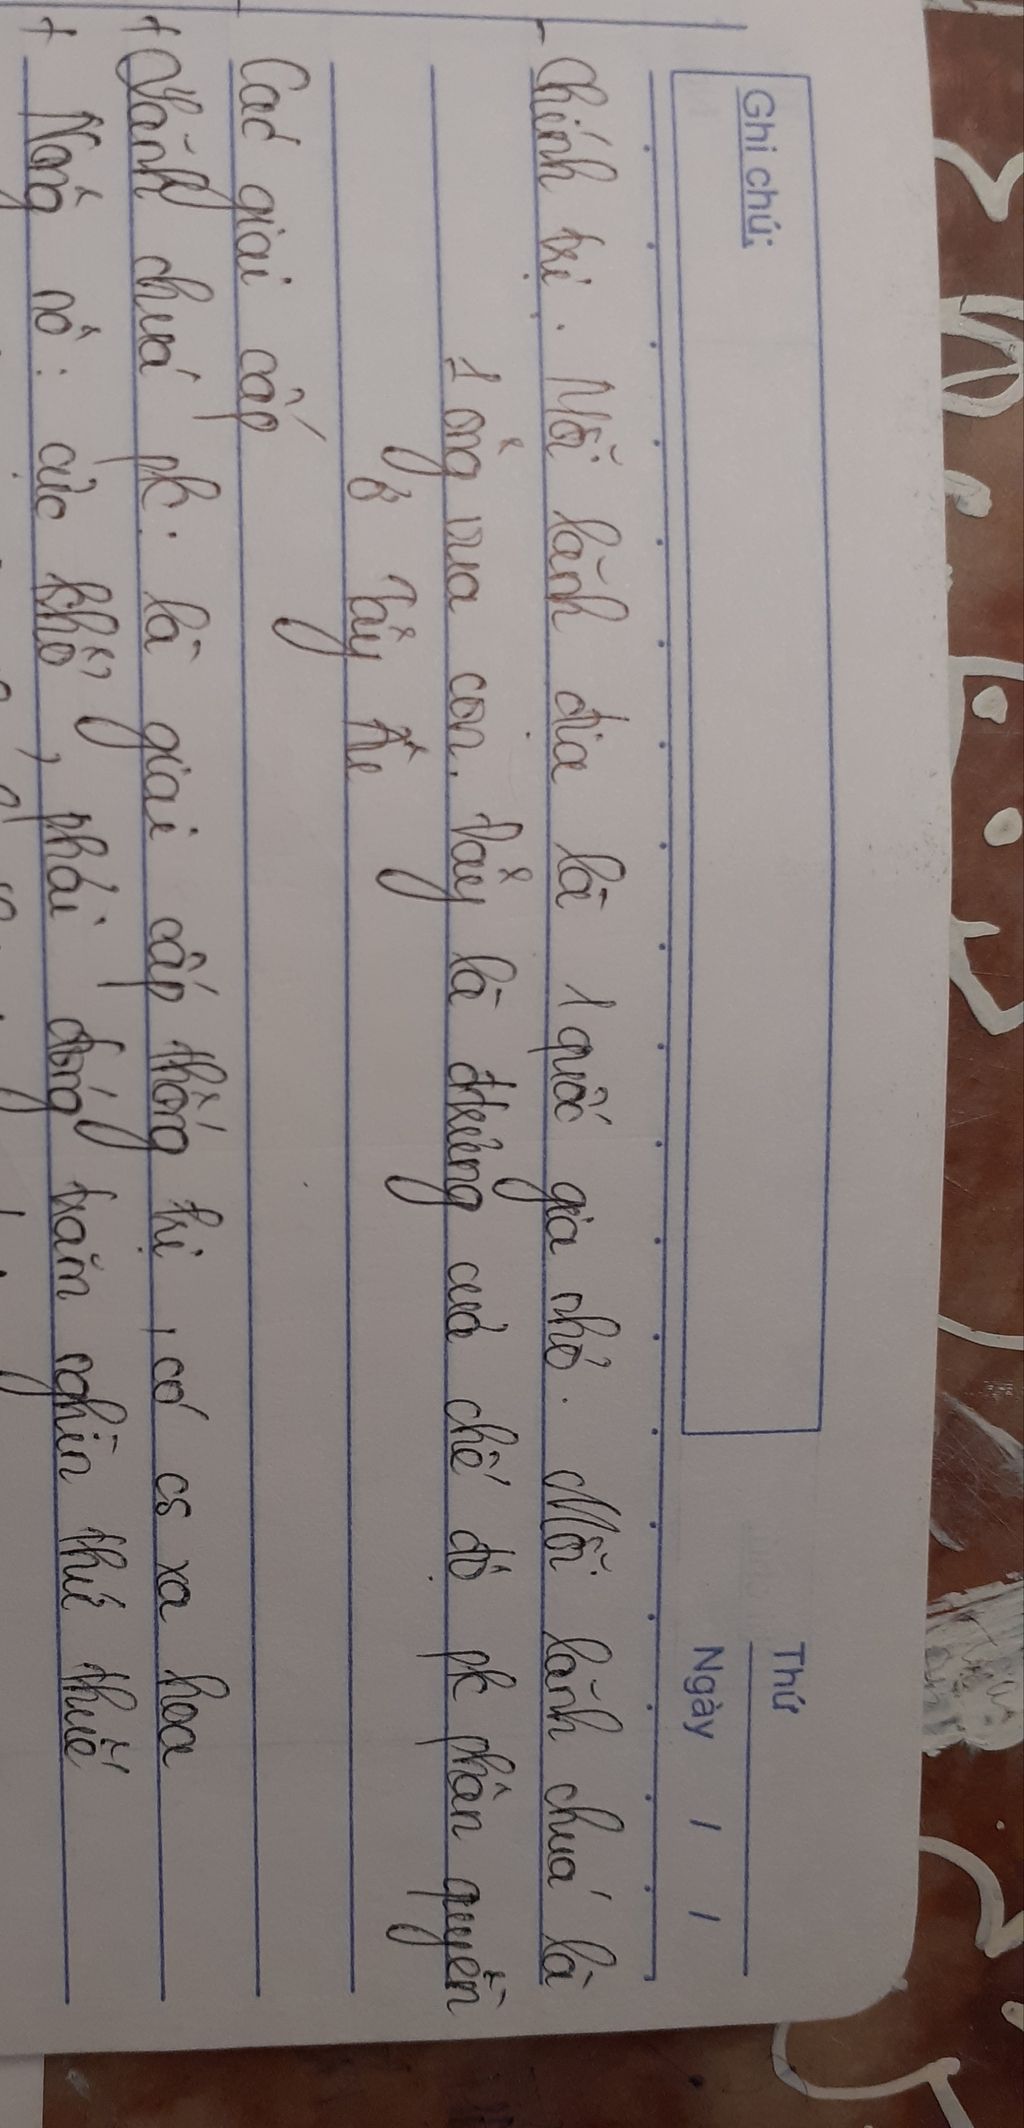 Ghi chú:
Thứ
Ngày / /
- Chính trị. Mỗi lãnh địa là 1 quốc gia nhỏ. Mỗi lãnh chúa là
1 ông vua con. Đây là đặc trưng của chế độ pk phân quyền
ở Tây Âu
Các giai cấp
+ Lãnh chúa pk: là giai cấp thống trị, có cs xa hoa
+ Nông nô: cực khổ, phải đóng trăm nghìn thứ thuế